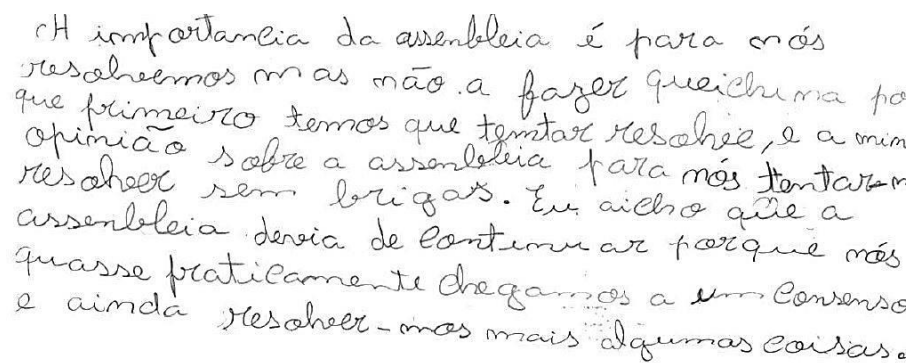 A importancia da assenbleia é para nós
resolveemos mas não a fazer queichinna po
que primeiro temos que temtar resolvee, e a min
opinião sobre a assenbleia para nós tentarem
resolveer sem brigas. Eu aicho que a
assenbleia devia de continuar porque nós
quasse praticamente chegamos a um consenso
e ainda resolveer-mos mais algumas coisas.